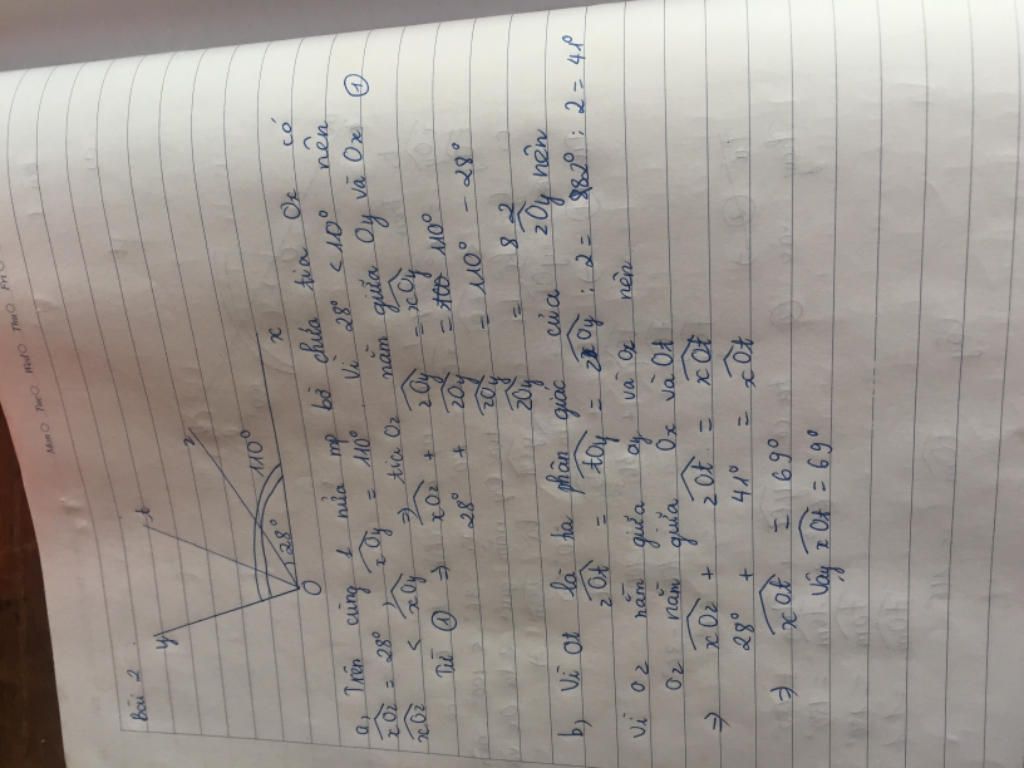 Mon Tue Wed Thu Fri
Bài 2
y
t
z
110°
28°
O
x
a, Trên cùng 1 nửa mp bờ chứa tia Ox có
xOz = 28° xOy = 110° Vì 28° < 110° nên
xOz < xOy => tia Oz nằm giữa Oy và Ox ①
Từ ① => xOz + zOy = xOy
28° + zOy = 110°
zOy = 110° - 28°
zOy = 82
b) Vì Ot là tia phân giác của zOy nên
zOt = tOy = zOy : 2 = 82° : 2 = 41°
Vì Oz nằm giữa Oy và Ox nên
Oz nằm giữa Ox và Ot
=> xOz + zOt = xOt
28° + 41° = xOt
=> xOt = 69°
Vậy xOt = 69°